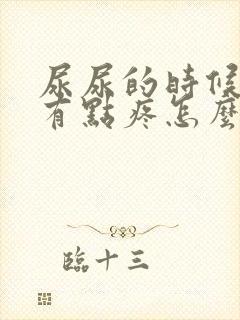 尿尿的時候
有點疼怎麼
臨十三